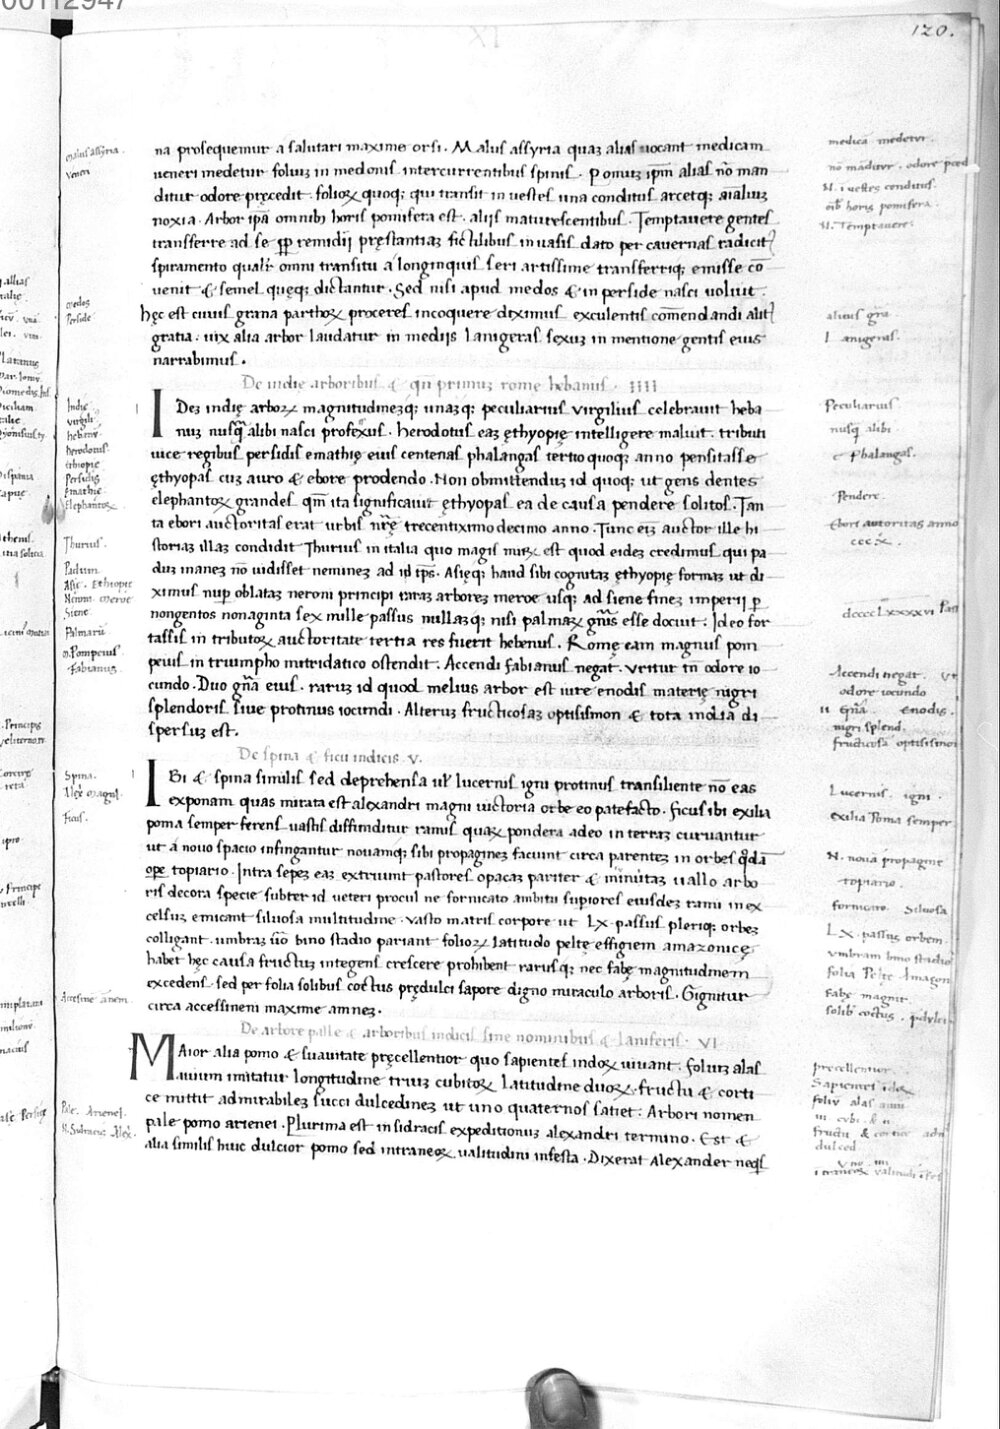 120.
na prosequemur a salutari maxime orsi. Malus assyria quaʒ alias uocant medicam
ueneri medetur folium in medonis intercurrentibus spinis. Pomuʒ ip̄m alias nō man
ditur odore pręcedit. folioꝝ quoq; qui transit in uestes una conditus arcetq; aīaliuʒ
noxia. Arbor ip̄a omnibꝫ horis pomifera est. alijs maturescentibus. Temptauere gentes
transferre ad se ꝓp̄ remidij pręstantiaʒ fictilibus in uasis dato per cauernas radicib̄
spiramento qualr̄ omni transitu a longinquis seri artissime transferriq; emisse cō
uenit & semel quęq; dictantur. Sed nisi apud medos & in perside nasci uoluit.
hęc est cuius grana parthoꝝ proceres incoquere diximus exculentis com̄endandi alit
gratia. uix alia arbor laudatur in medijs lanigeras sexuʒ in mentione gentis eius
narrabimus.
De indię arboribus & qn̄ primuʒ romę hebanus. IIII
IDeʒ indię arboꝝ magnitudineʒq; unaʒq; peculiarius virgilius celebrauit heba
nuʒ nusq̄ alibi nasci professus. herodotus eaʒ ęthyopię intelligere maluit. tributi
uice regibus persidis emathię eius centenas phalangas tertio quoq; anno pensitasse
ęthyopas cuʒ auro & ebore prodendo. Non obmittenduʒ id quoq; ut gens dentes
elephantoꝝ grandes qm̄ ita significauit ęthyopas ea de causa pendere solitos. Tan
ta ebori auctoritas erat urbis nr̄ę trecentiximo decimo anno. Tunc eīʒ auctor ille hi
storiaʒ illaʒ condidit Thurius in italia quo magis miꝝ est quod eideʒ credimus qui pa
duʒ inaneʒ nō uidisset nemineʒ ad id tp̄s. Asięq; haud sibi cognitaʒ ęthyopię formaʒ ut di
ximus nup̄ oblataʒ neroni principi raras arboreʒ meroe usq; ad siene fineʒ imperij p̄
nongentos nonaginta sex mille passus nullaʒq; nisi palmaꝝ gn̄is esse docuit: Ideo for
tassis in tributoꝝ auctoritate tertia res fuerit hebenus. Romę eam magnus pom
peius in triumpho mitridatico ostendit. Accendi fabianus negat. vritur tn̄ odore io
cundo. Duo gn̄a eius. raruʒ id quod melius arbor est iure enodis materię nigri
splendoris siue protinus iocundi. Alteruʒ fructicosaʒ optisismon & tota india di
spersuʒ est.
De spina & ficu indicis V.
IBi & spina similis sed deprehensa ut̄ lucernis igni protinus transiliente nō eas
exponam quas mirata est alexandri magni uictoria orbe eo patefacto. ficus ibi exilia
poma semper ferens uastis diffunditur ramis quaꝝ pondera adeo in terras curuantur
ut a nouo spacio infingantur nouamq; sibi propagineʒ faciunt circa parenteʒ in orbeʒ q̄da
ope topiario. Intra sepeʒ eaʒ extriunt pastores opacaʒ pariter & minutaʒ uallo arbo
ris decora specie subter id ueteri procul ne fornicato ambitu supiores eiusdeʒ rami in ex
celsuʒ emicant siluosa multitudine. vasto matris corpore ut LX passus pleriq; orbeʒ
colligant. umbraʒ uō bino stadio pariant folioꝝ latitudo peltę effigiem amazonicę
habet hęc causa fructuʒ integens crescere prohibent rarusq; nec fabę magnitudinem
excedens sed per folia solibus coctus prędulci sapore digno miraculo arboris. Gignitur
circa accessinem maxime amneʒ.
De arbore palle & arboribus indicis sine nominibus & laniferis. VI
MAior alia pomo & suauitate pręcellentior quo sapientes indoꝝ uiuant. foliuʒ alas
auium imitatur longitudine triuʒ cubitoꝝ latitudine duoꝝ. fructu & corti
ce mittit admirabileʒ succi dulcedineʒ ut uno quaternos satiet: Arbori nomen
pale pomo arienei. Plurima est in sidracis expeditionuʒ alexandri termino. Est &
alia similis huic dulcior pomo sed intraneoꝝ ualitudini infesta. Dixerat Alexander neq̄s
malus assyria.
veneri
medos
Perside
Indie
virgili
hebene
herodotus
Ethiopie
Persidis
Emathie
Elephantoꝝ
Thurius.
Padum
Asie. Ethiopie
Neroni. meroe
Siene.
Palmarū
M. Pompeius
Fabianus
Spina.
Alex̄ magni.
ficus.
Accesine ānem.
Pale. Arienei.
medicā medetur.
nō māditur. odore pced
N. i uestes conditus.
oīb horis pomifera.
N. Temptauere.
alicuius grā.
Lanigeras.
Peculiarius
nusq̄ alibi.
Phalangas.
Pendere.
Ebori autoritas anno
cccx.
dccccLxxxxvi Pass
Accendi negat. vr
odore iocundo
ii gn̄a. Enodis.
nigri splend.
fructicosā optisismon
Lucernis. igni.
exilia Poma semper
N. nouā propagine
topiario.
fornicato. Siluosa
LX. passus orbem.
vmbram bino stadio
folia Pelte Amazon
Fabę magnit.
solib' coctus. pdulci
precellentior.
Sapientes idoꝝ
foliū alas auiū
iii cubi. & ii.
fructu & cortice adm
dulced.
vno iiii